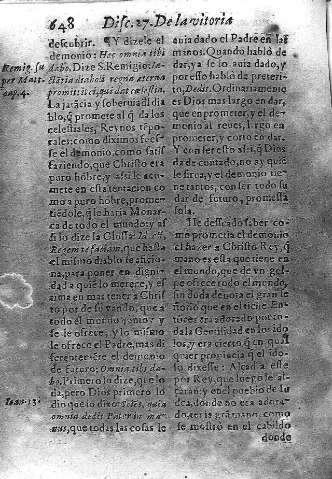 648 Disc. 27. De la vitoria
descubrir. ¶ Y dizele el
demonio: Hæc omnia tibi
dabo. Dize S. Remigio:
Remig. su
per Matt.
cap. 4.
diaboli regna æterna
promitti, qui dat cœlestia.
La jatācia y soberuia dl dia
blo, q̄ promete al q̄ da los
celestiales, Reynos tēpo-
rales: como diximos
se el demonio, como
faziendo, que Christo era
puro hōbre, y assi le aco-
mete en esta tentacion co
mo a puro hōbre, prome-
tiēdole, q̄ le haria Monar
ca de todo el mundo: y as
si lo dize la Glossa:
que hasta
el mismo diablo se aficio-
na, para poner en digni-
dad a quiē lo merece, y es
tima en mas tener a Chris
to por de su vando, que a
todo el mundo junto: y
se le ofrece, y lo mismo
le ofrece el Padre, mas di
ferentemēte el demonio
de futuro: Omnia tibi da-
bo. Primero lo dize, que lo
da, pero Dios primero lo
dio que lo dixo:
Ioan. 13.
omnia dedit Pater in ma-
nus, que todas las cosas le
auia dado el Padre en las
manos. Quando hablò de
dar, ya se lo auia dado, y
por esso hablò de preteri-
to, Dedit. Ordinariamente
es Dios mas largo en dar,
que en prometer, y el de-
monio al reues, largo en
prometer, y corto en dar.
Y con ser esto assi, q̄ Dios
da de contado, no ay quiē
le sirua, y el demonio tie
ne tantos, con ser todo su
dar de futuro, promessa
sola.
He desseado saber co-
mo prometia el demonio
el hazer a Christo Rey, q̄
mano es esta que tiene en
el mundo, que de vn gol-
pe ofrece todo el mundo,
sin duda deuio ser la grā ma
no que en el tiene. En-
tōces era adorado por to-
da la Gentilidad en los ido
los, y era cierto q̄ en qual
quier prouincia q̄ el ido-
lo dixesse: Alçad a esse
por Rey, que luego le al-
çaran: y en el pueblo de Iu
dea, donde no era adora-
do, tenia grā mano, como
se mostrò en el cabildo
donde